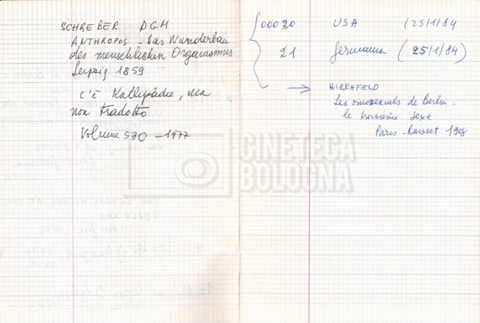 SCHREBER DGM
ANTHROPOS - Das Wunderbau
des menschlichen Organismus
Leipzig 1859
c'è Kallipädie, ma
non tradotto
Volume 590 - 1977
00020 USA (25/1/84
21 Germania (25/1/84)
HIRCHFELD
Les omosexuels de Berlin -
le troisième sexe
Paris - Rousset 1908
CINETECA
BOLOGNA